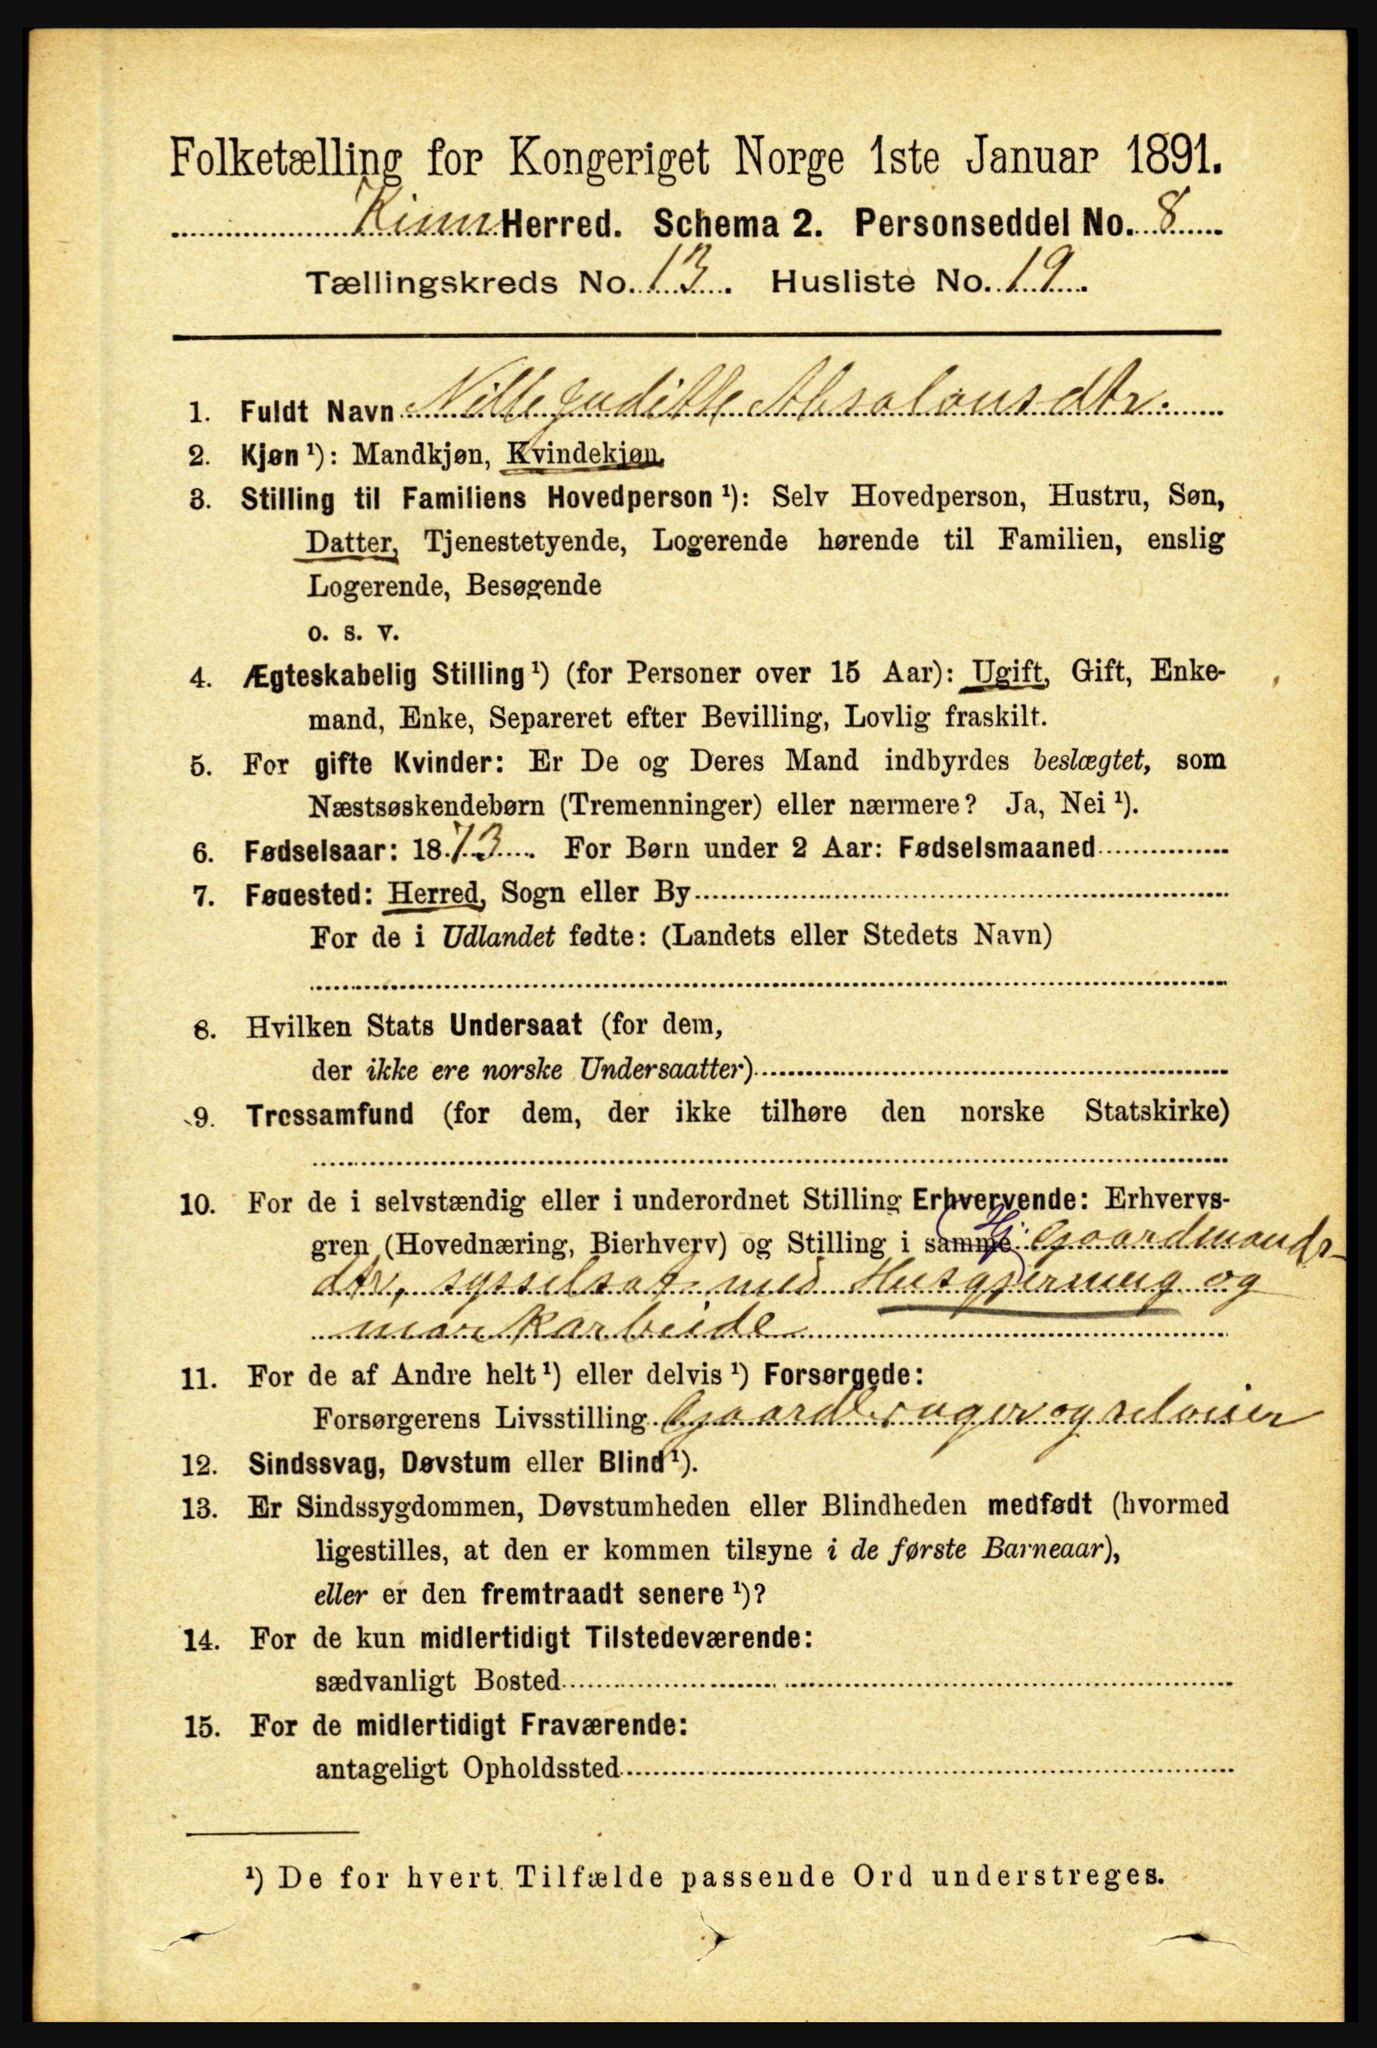 Folketælling for Kongeriget Norge 1ste Januar 1891.
Kinn Herred. Schema 2. Personseddel No. 8
Tællingskreds No. 13. Husliste No. 19.
1. Fuldt Navn Nille Juditte Absalonsdtr.
2. Kjøn ¹): Mandkjøn, Kvindekjøn.
3. Stilling til Familiens Hovedperson ¹): Selv Hovedperson, Hustru, Søn,
Datter, Tjenestetyende, Logerende hørende til Familien, enslig
Logerende, Besøgende
o. s. v.
4. Ægteskabelig Stilling ¹) (for Personer over 15 Aar): Ugift, Gift, Enke-
mand, Enke, Separeret efter Bevilling, Lovlig fraskilt.
5. For gifte Kvinder: Er De og Deres Mand indbyrdes beslægtet, som
Næstsøskendebørn (Tremenninger) eller nærmere? Ja, Nei ¹).
6. Fødselsaar: 1873. For Børn under 2 Aar: Fødselsmaaned
7. Føuested: Herred, Sogn eller By
For de i Udlandet fødte: (Landets eller Stedets Navn)
8. Hvilken Stats Undersaat (for dem,
der ikke ere norske Undersaatter)
9. Trossamfund (for dem, der ikke tilhøre den norske Statskirke)
10. For de i selvstændig eller i underordnet Stilling Erhvervende: Erhvervs-
gren (Hovednæring, Bierhverv) og Stilling i samme Gaardmands-
dtr, sysselsat med Husgjerning og
markarbeide
11. For de af Andre helt ¹) eller delvis ¹) Forsørgede:
Forsørgerens Livsstilling Gaardbruger og selveier
12. Sindssvag, Døvstum eller Blind ¹).
13. Er Sindssygdommen, Døvstumheden eller Blindheden medfødt (hvormed
ligestilles, at den er kommen tilsyne i de første Barneaar),
eller er den fremtraadt senere ¹)?
14. For de kun midlertidigt Tilstedeværende:
sædvanligt Bosted
15. For de midlertidigt Fraværende:
antageligt Opholdssted
¹) De for hvert Tilfælde passende Ord understreges.